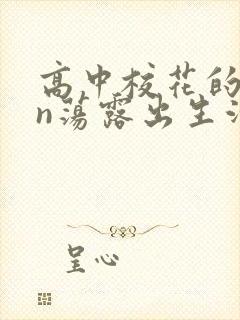 高中校花的
n荡露出生活
呈心